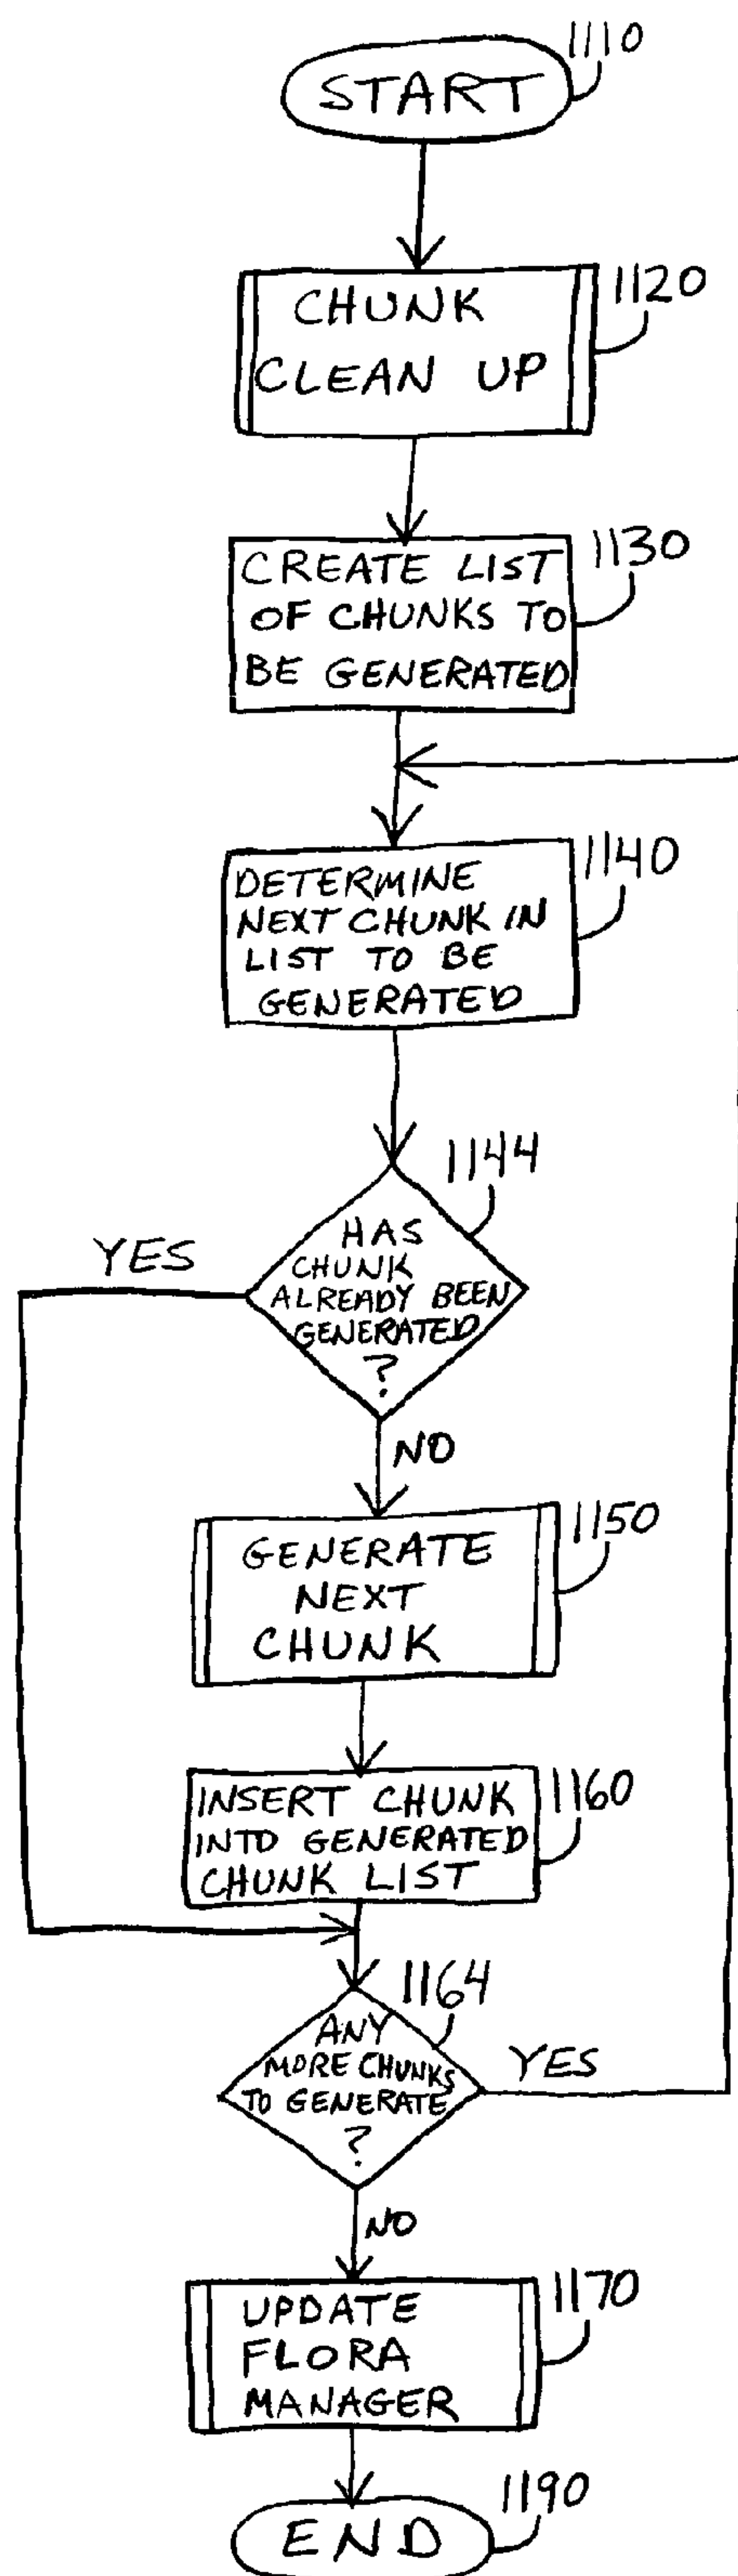 1110
START
1120
CHUNK
CLEAN UP
1130
CREATE LIST
OF CHUNKS TO
BE GENERATED
1140
DETERMINE
NEXT CHUNK IN
LIST TO BE
GENERATED
1144
HAS
CHUNK
ALREADY BEEN
GENERATED
?
YES
NO
1150
GENERATE
NEXT
CHUNK
1160
INSERT CHUNK
INTO GENERATED
CHUNK LIST
1164
ANY
MORE CHUNKS
TO GENERATE
?
YES
NO
1170
UPDATE
FLORA
MANAGER
1190
END